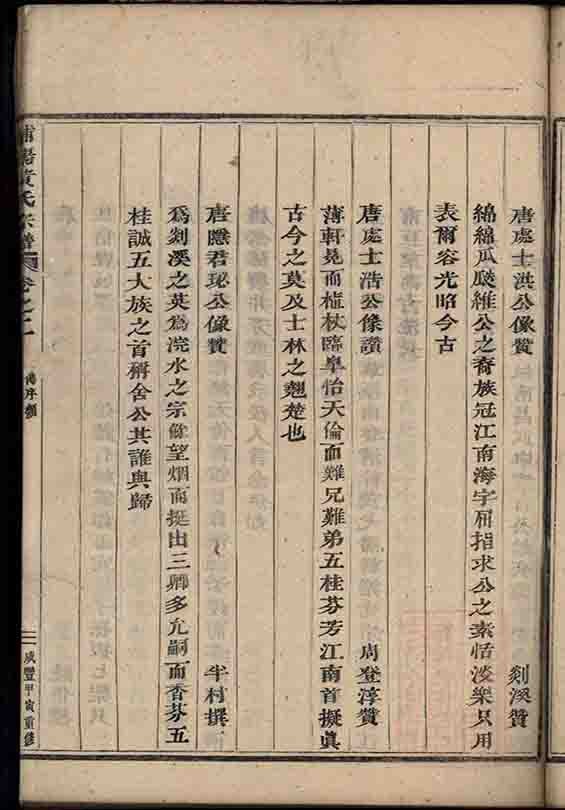 唐處士洪公像贊 剡溪贊
綿綿瓜瓞維公之裔族冠江南海宇屈指求公之素恬淡樂只用
表爾容光昭今古
唐處士浩公像讚 周登淳贊
薄軒冕而植杖臨臯怡天倫而難兄難弟五桂芬芳江南首擬眞
古今之莫及士林之翹楚也
唐隱君珌公像贊 半村撰
為剡溪之英為浣水之宗餘望烟而挺出三卿多允嗣而香芬五
桂誠五大族之首稱舍公其誰與歸
黃氏宗譜 卷之二 舊序類 咸豐甲寅重修